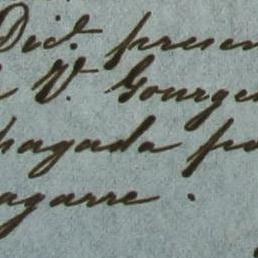 Dic.e presen
V. Gourge
pagada po
agarre.